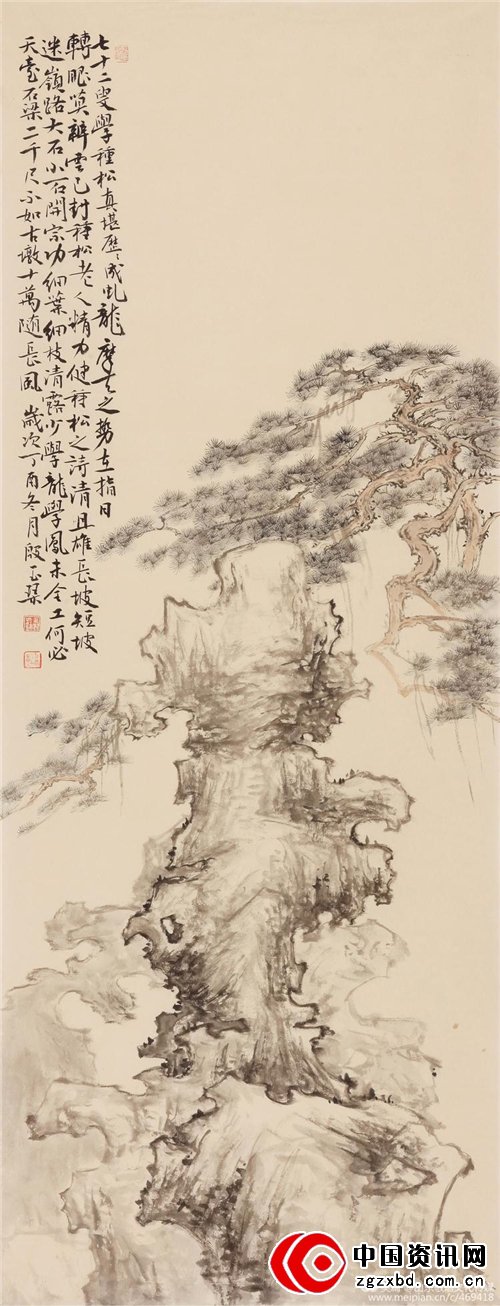 七十二叟學種松真堪歷〻成虬龍摩天之勢在指日
轉眼莫辭雲已封種松老人精力健種松之詩清且雄長坡短坡
迷嶺路大石小石開宗功細葉細枝清露少學龍學鳳未全工何必
天臺石梁二千尺不如古墩十萬隨長風 歲次丁酉冬月殷玉琹
中国资讯网
zgzxbd.com.cn
www.meipian.cn/c/469418